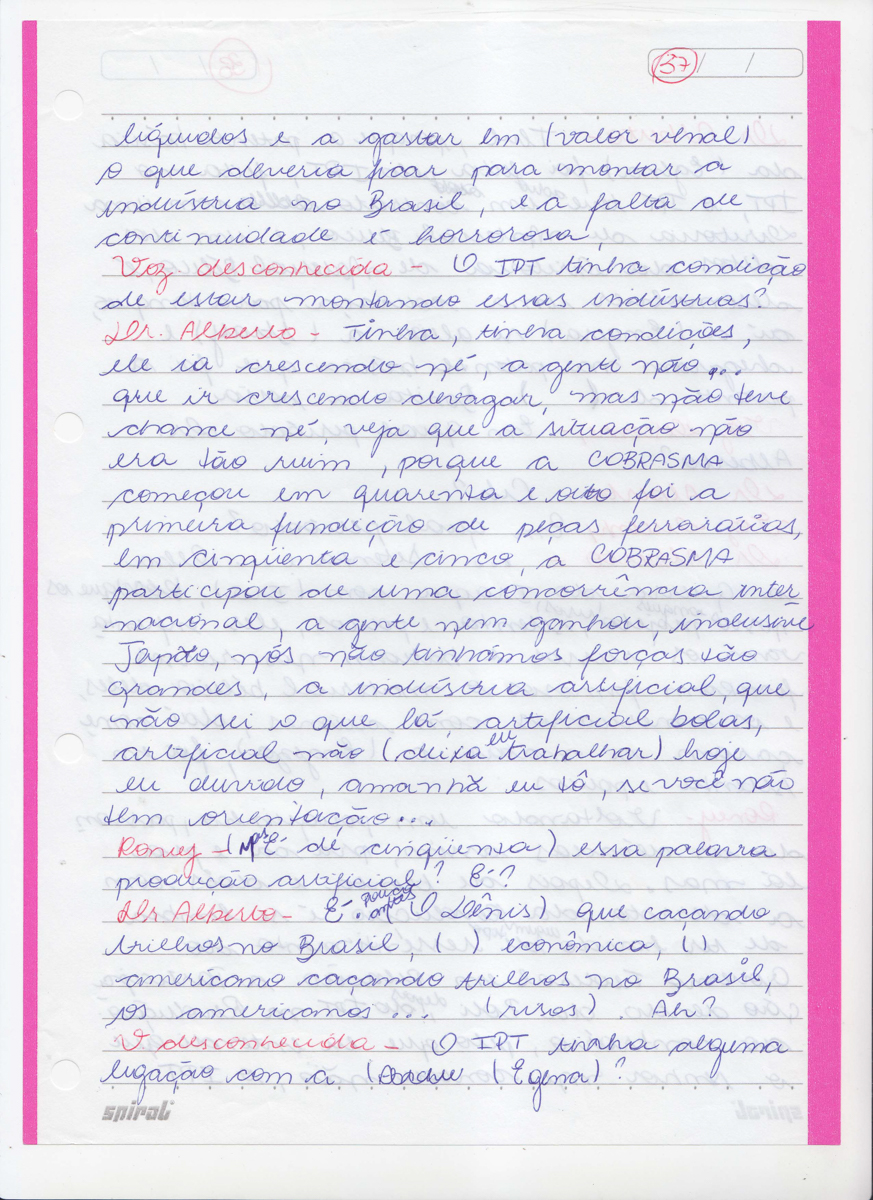 37 / /
líquidos e a gastar em (valor venal)
o que deveria ficar para montar a
indústria no Brasil, e a falta de
continuidade é horrorosa,
Voz desconhecida - O IPT tinha condição
de estar montando essas indústrias?
Dr. Alberto - Tinha, tinha condições,
ele ia crescendo né, a gente não...
que ir crescendo devagar, mas não teve
chance né, veja que a situação não
era tão ruim, porque a COBRASMA
começou em quarenta e oito foi a
primeira fundição de peças ferroviárias,
em cinqüenta e cinco, a COBRASMA
participou de uma concorrência inter
nacional, a gente nem ganhou, inclusive
Japão, nós não tínhamos forças tão
grandes, a indústria artificial, que
não sei o que lá, artificial bolas,
artificial não (deixa eu trabalhar) hoje
eu duvido, amanhã eu tô, se você não
tem orientação...
Rony - ( É de cinqüenta) essa palavra
produção artificial? É?
Dr Alberto - É. pouco antes O Dênis) que caçando
trilhos no Brasil, ( ) econômica, ( )
americano caçando trilhos no Brasil,
os americanos... (risos). Ah?
V desconhecida - O IPT tinha alguma
ligação com a ( ( Egena)?
spiral